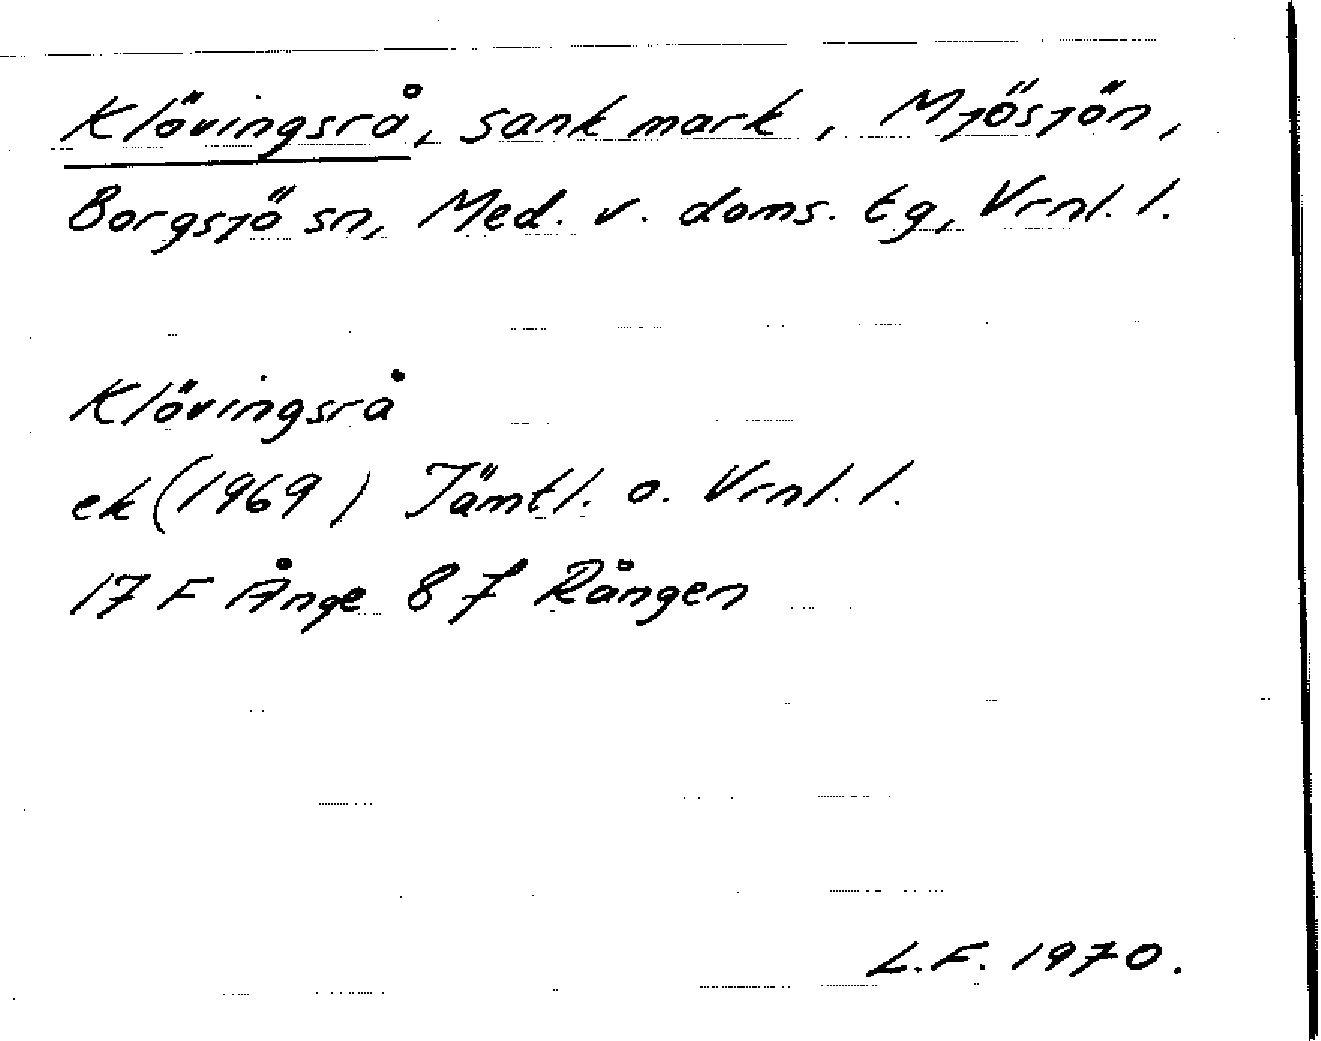 Klövingsrå, sank mark, Mjösjön,
Borgsjö sn, Med. v. doms. tg, Vrnl. l.
Klövingsrå
ek (1969) Jämtl. o. Vrnl. l.
17 F Ånge 8 f Rången
L.F. 1970.